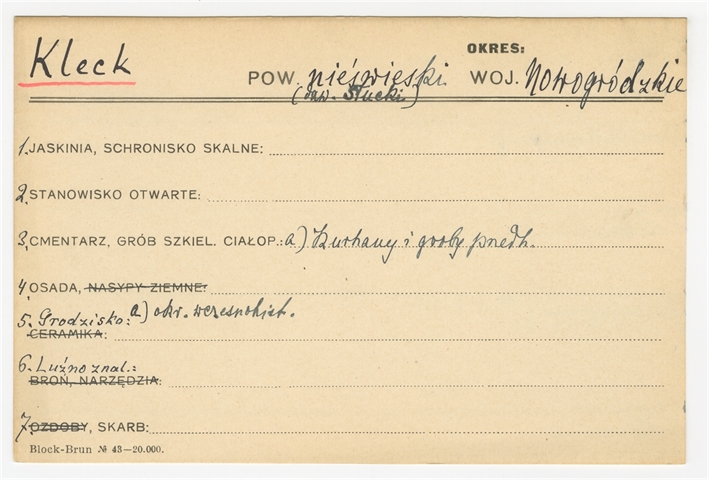 Kleck
OKRES:
POW. nieświeski WOJ. Nowogródzkie
(daw. Słucki)
1. JASKINIA, SCHRONISKO SKALNE:
2. STANOWISKO OTWARTE:
3. CMENTARZ, GRÓB SZKIEL. CIAŁOP.: a) Kurhany i groby przedh.
4. OSADA, NASYPY ZIEMNE:
5. Grodzisko: a) okr. wczesnohist.
CERAMIKA:
6. Luźno znal.:
BROŃ, NARZĘDZIA:
7. OZDOBY, SKARB:
Block-Brun № 43—20.000.